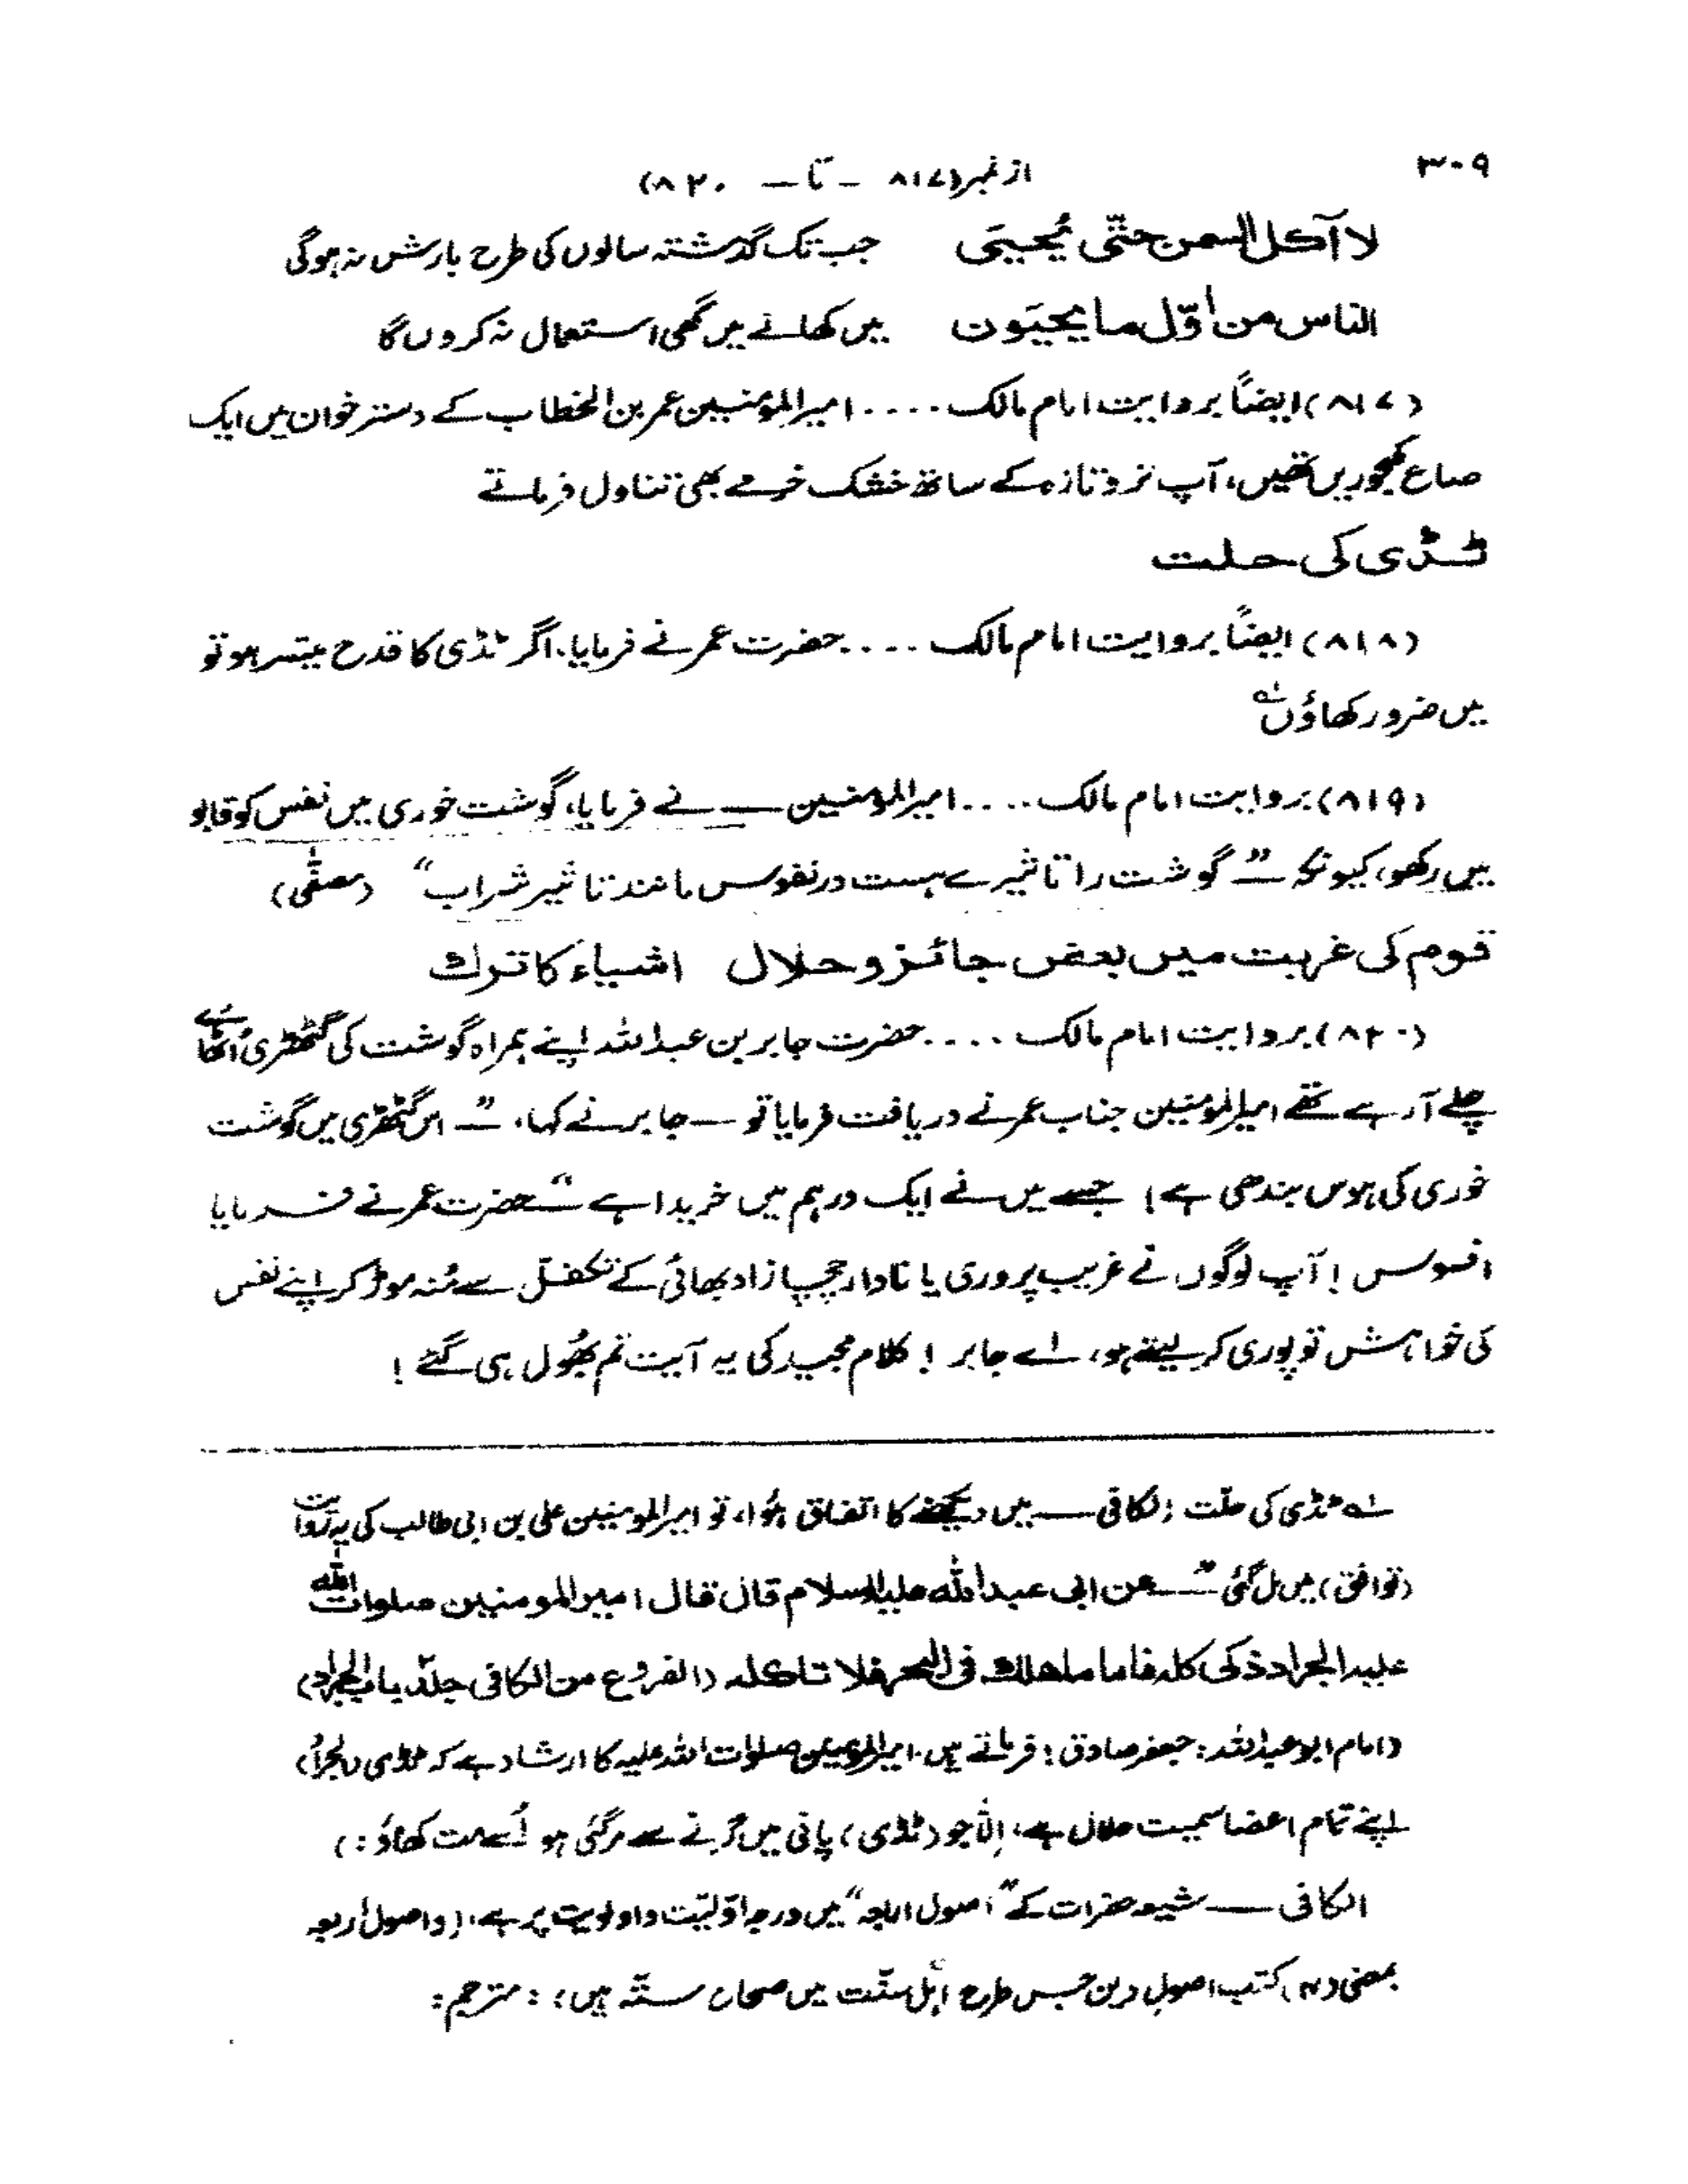 ۳۰۹
از نمبر (۸۱۷ — تا — ۸۲۰)
لا آکل السمن حتّٰی یُحییَ جب تک گذشتہ سالوں کی طرح بارش نہ ہوگی
الناس من اوّل ما یحیَون میں کھانے میں گھی استعمال نہ کروں گا
(۸۱۷) ایضاً بروایت امام مالک .... امیرالمؤمنین عمر بن الخطاب کے دسترخوان میں ایک
صاع کھجوریں تھیں، آپ تروتازہ کے ساتھ خشک خرمے بھی تناول فرماتے
ٹڈی کی حلت
(۸۱۸) ایضاً بروایت امام مالک .... حضرت عمر نے فرمایا، اگر ٹڈی کا قدح میسّر ہو تو
میں ضرور کھاؤں لہ
(۸۱۹) بروایت امام مالک .... امیرالمؤمنین — نے فرمایا، گوشت خوری میں نفس کو قابو
میں رکھو، کیونکہ — ”گوشت را تاثیرے ہست در نفوس مانند تاثیر شراب“ (مصفّٰی)
قوم کی غربت میں بعض جائز و حلال اشیاء کا ترک
(۸۲۰) بروایت امام مالک .... حضرت جابر بن عبداللہ اپنے ہمراہ گوشت کی گٹھڑی اُٹھائے
چلے آ رہے تھے امیرالمومنین جناب عمر نے دریافت فرمایا تو — جابر نے کہا، ”— اس گٹھڑی میں گوشت
خوری کی ہوس بندھی ہے! جسے میں نے ایک درہم میں خریدا ہے“ — حضرت عمر نے فرمایا
افسوس! آپ لوگوں نے غریب پروری یا نادار چچا زاد بھائی کے تکفّل سے مُنہ موڑ کر اپنے نفس
کی خواہش تو پوری کر لیتے ہو، اے جابر! کلام مجید کی یہ آیت تم بھُول ہی گئے!
لہ ٹڈی کی حلّت: الکافی — میں دیکھنے کا اتفاق ہُوا، تو امیرالمومنین علی بن ابی طالب کی یہ روایت
(توافق) میں مل گئی ”— عن ابی عبداللّٰہ علیہ السلام قال قال امیرالمومنین صلوات اللّٰہ
علیہ الجراد ذکی کلہ فاما ما ھلک فی البحر فلا تاکلہ (الفروع من الکافی جلد باب الجراد)
(امام ابو عبداللہ: جعفر صادق: فرماتے ہیں. امیرالمومنین صلوات اللہ علیہ کا ارشاد ہے کہ ٹڈی (الجراد)
اپنے تمام اعضا سمیت حلال ہے، اِلّا جو (ٹڈی) پانی میں گرنے سے مر گئی ہو اُسے مت کھاؤ:)
الکافی — شیعہ حضرات کے ”اصول اربعہ“ میں درجہ اوّلیّت و اولویت پر ہے، (و اصول اربعہ
بمعنی (۴) کتب اصول دین جس طرح اہل سنّت میں صحاح ستّہ ہیں): مترجم: